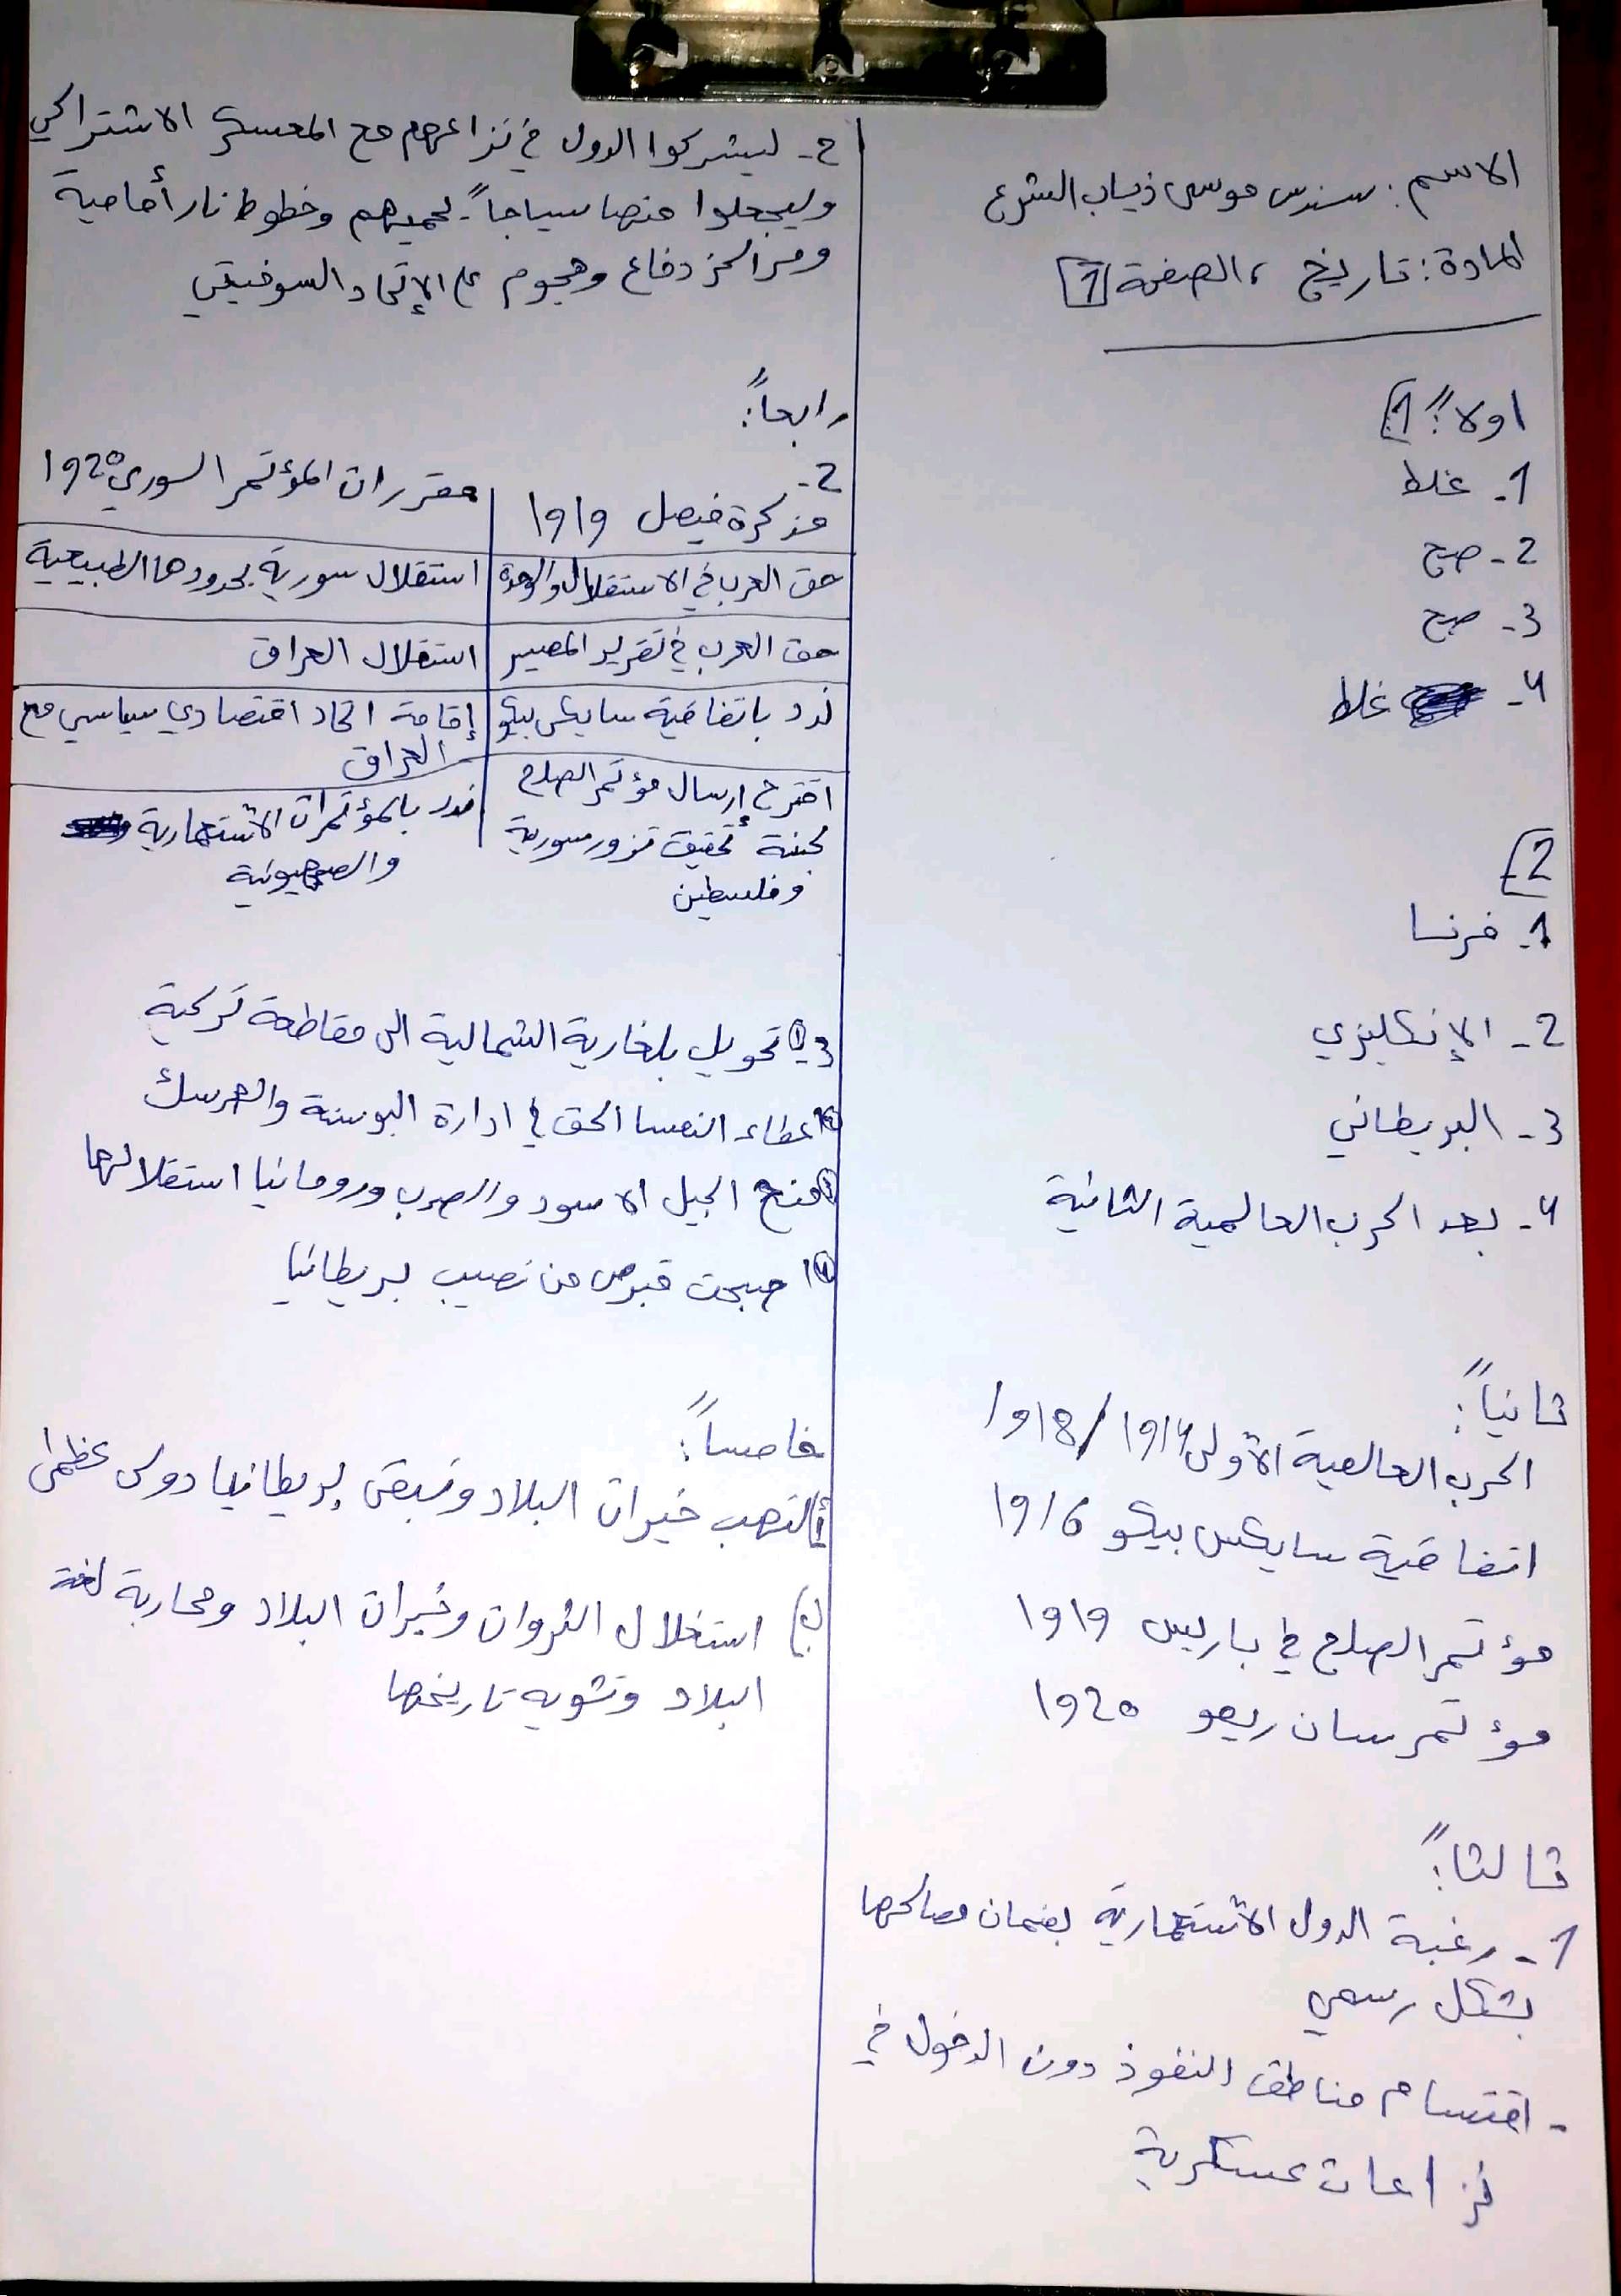 الاسم: سندس موسى ذياب الشرع
المادة: تاريخ ، الصفحة 1
اولاً: 1
1- غلط
2- صح
3- صح
4- غلط
2
1- فرنسا
2- الإنكليزي
3- البريطاني
4- بعد الحرب العالمية الثانية
ثانياً:
الحرب العالمية الأولى 1914/1918
اتفاقية سايكس بيكو 1916
مؤتمر الصلح في باريس 1919
مؤتمر سان ريمو 1920
ثالثاً:
1- رغبة الدول الاستعمارية بضمان مصالحها
بشكل رسمي
- اقتسام مناطق النفوذ دون الدخول في
نزاعات عسكرية
2- ليشركوا الدول في نزاعهم مع المعسكر الاشتراكي
وليجعلوا منها سياجاً يحميهم وخطوط نار أمامية
ومراكز دفاع وهجوم على الإتحاد السوفيتي
رابعاً:
2-
مذكرة فيصل 1919 مقررات المؤتمر السوري 1920
حق العرب في الاستقلال والوحدة استقلال سورية بحدودها الطبيعية
حق العرب في تقرير المصير استقلال العراق
ندد باتفاقية سايكس بيكو إقامة اتحاد اقتصادي سياسي مع
العراق
اقترح إرسال مؤتمر الصلح ندد بالمؤتمرات الاستعمارية
لجنة تحقيق تزور سورية والصهيونية
وفلسطين
3- 1 تحويل بلغارية الشمالية الى مقاطعة تركية
2 اعطاء النمسا الحق في ادارة البوسنة والهرسك
3 منح الجبل الاسود والصرب ورومانيا استقلالها
4 اصبحت قبرص من نصيب بريطانيا
خامساً:
أ) لنهب خيرات البلاد وتبقى بريطانيا دولى عظمى
ب) استغلال الثروات وخيرات البلاد ومحاربة لغة
البلاد وتشويه تاريخها